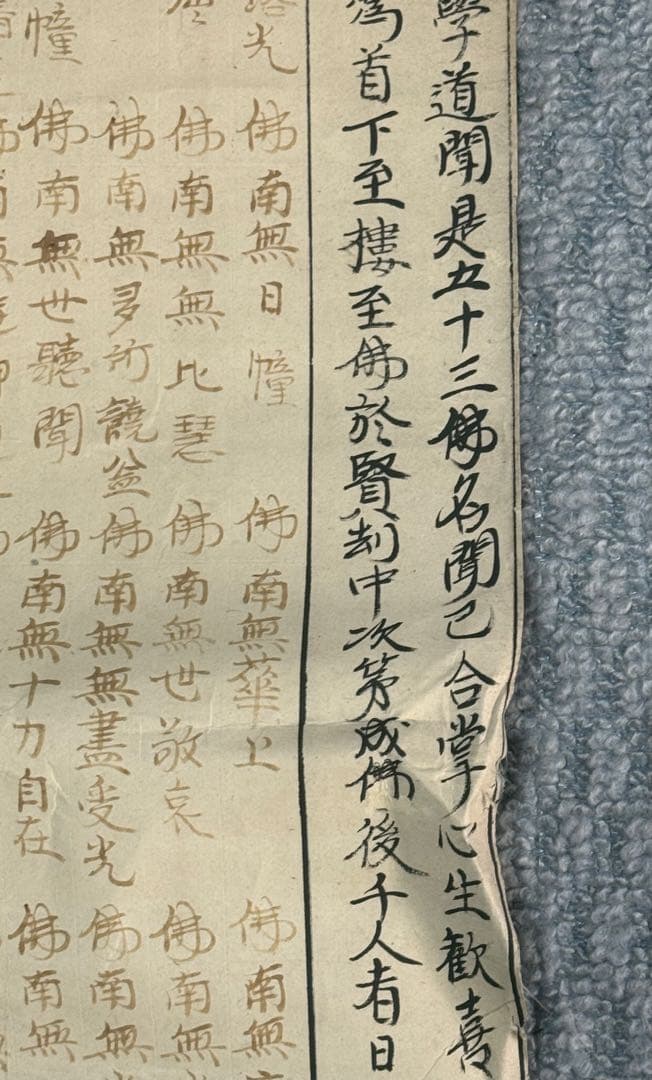 學道聞是五十三佛名聞已合掌心生歡喜
為首下至樓至佛於賢刼中次第成佛後千人者日
光 佛南無日幢 佛南無華上 佛南無
佛南無無比慧 佛南無世敬哀 佛南無
佛南無多所饒益 佛南無無盡受光 佛南無
幢 佛南無世聽聞 佛南無十力自在 佛南無